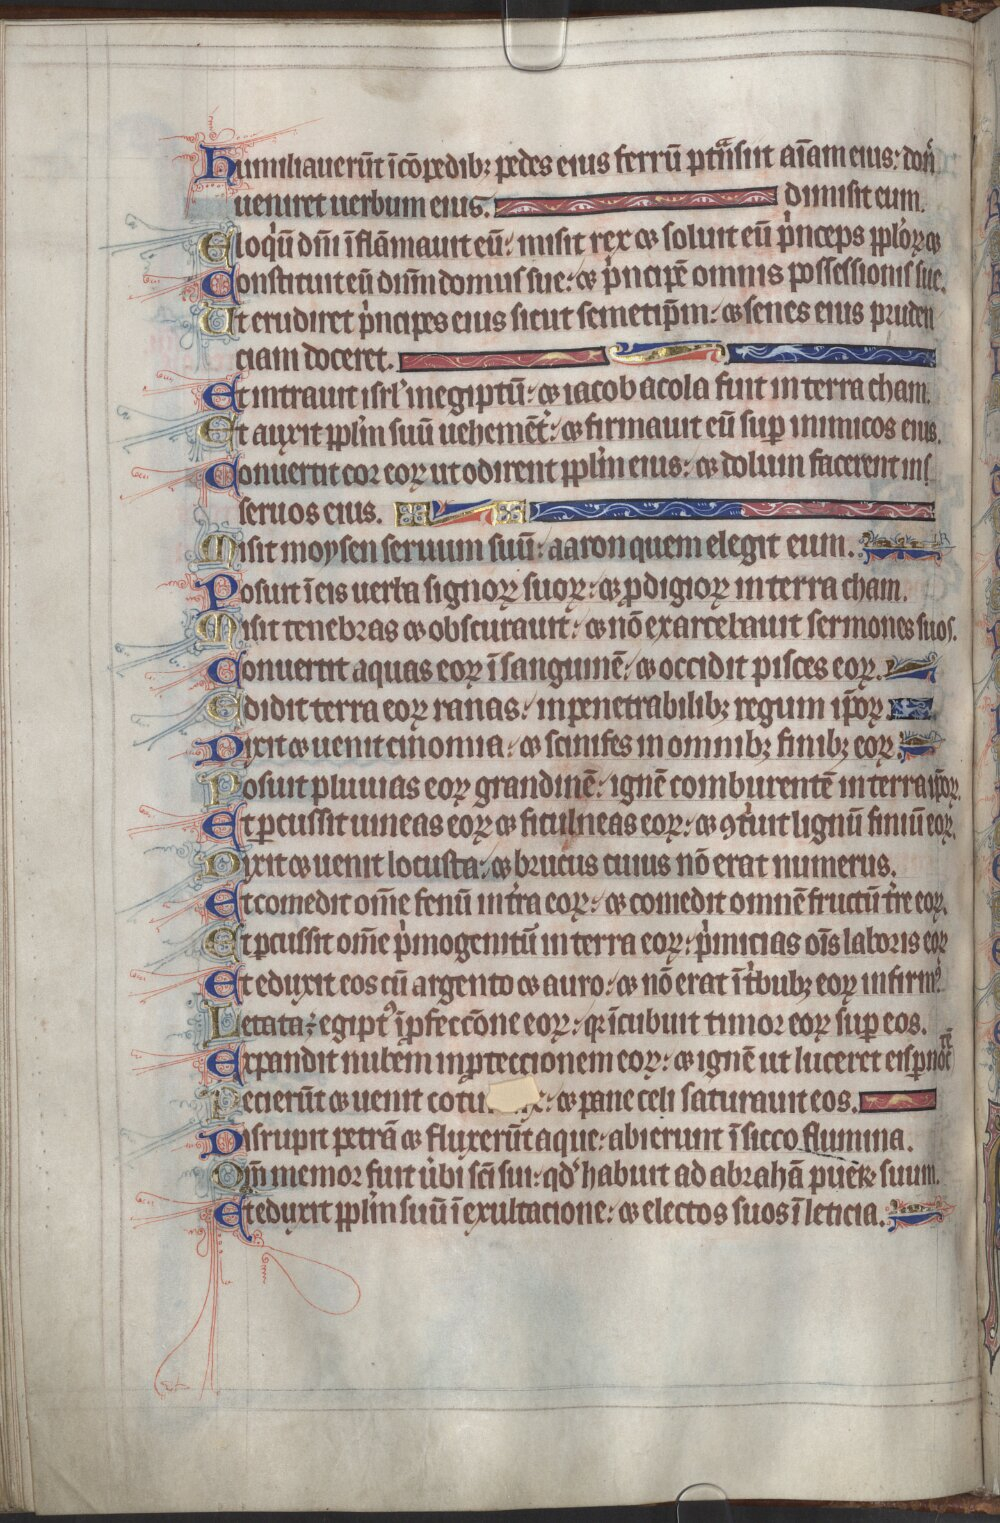 Humiliauerūt ī cōpedibꝫ pedes eius ferrū ptͣnsiit aīam eius: don̄
ueniret uerbum eius. dimisit eum.
Eloqͥū dn̄i īflāmauit eū: misit rex ⁊ soluit eū pͥnceps ppl'oꝝ ⁊
Constituit eū dn̄m domus sue: ⁊ pͥncipē omnis possessionis sue.
Ut erudiret pͥncipes eius sicut semetip̄m: ⁊ senes eius pruden
ciam doceret.
Et intrauit isrl' in egiptū: ⁊ iacob acola fuit in terra cham.
Et auxit ppl'm suū uehemēt᷑: ⁊ firmauit eū suꝑ inimicos eius.
Conuertit cor eoꝝ ut odirent ppl'm eius: ⁊ dolum facerent in s
seruos eius.
Misit moysen seruum suū: aaron quem elegit eum.
Posuit ī eis uerba signoꝝ suoꝝ: ⁊ ꝓdigioꝝ in terra cham.
Misit tenebras ⁊ obscurauit: ⁊ nō exarcebauit sermones suos.
Conuertit aquas eoꝝ ī sanguinē: ⁊ occidit pisces eoꝝ.
Edidit terra eoꝝ ranas: in penetrabilibꝫ regum ip̄oꝝ
Dixit ⁊ uenit cinomia: ⁊ scinifes in omnibꝫ finibꝫ eoꝝ.
Posuit pluuias eoꝝ grandinē: ignē comburentē in terra ip̄oꝝ.
Et ꝑcussit uineas eoꝝ ⁊ ficulneas eoꝝ: ⁊ ꝯtͥuit lignū finiū eoꝝ.
Dixit ⁊ uenit locusta: ⁊ brucus cuius nō erat numerus.
Et comedit om̄e fenū in tr̄a eoꝝ: ⁊ comedit omnē fructū tr̄e eoꝝ.
Et ꝑcussit om̄e pͥmogenitū in terra eoꝝ: pͥmicias oīs laboris eoꝝ
Et eduxit eos cū argento ⁊ auro: ⁊ nō erat ī tͥbubꝫ eoꝝ infirmꝰ.
Letata ē egiptꝰ ī ꝓfeccōne eoꝝ: qꝛ īcubuit timor eoꝝ suꝑ eos.
Expandit nubem in ꝓteccionem eoꝝ: ⁊ ignē ut luceret eis ꝑ noct
tē
Pecierūt ⁊ uenit cotu : ⁊ pane celi saturauit eos.
Disrupit petrā ⁊ fluxerūt aque: abierunt ī sicco flumina.
Qm̄ memor fuit ūbi sc̄i sui: qd' habuit ad abrahā puerū suum.
Et eduxit ppl'm suū ī exultacione: ⁊ electos suos ī leticia.